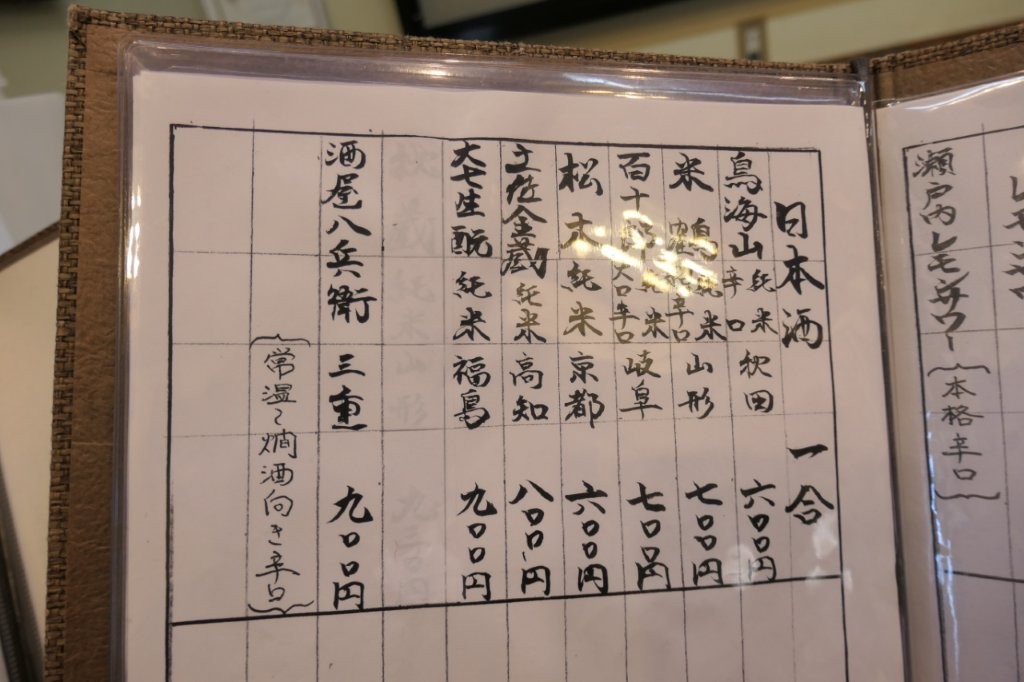 瀬戸内レモンサワー（本格辛口）
日本酒 一合
鳥海山 純米 辛口 秋田 六〇〇円
米鶴 純米 辛口 山形 七〇〇円
百十郎 純米 大辛口 岐阜 七〇〇円
松本 純米 京都 六〇〇円
土佐金蔵 純米 高知 八〇〇円
大七生酛 純米 福島 九〇〇円
酒屋八兵衛 三重 九〇〇円
（常温〜燗酒向き辛口）